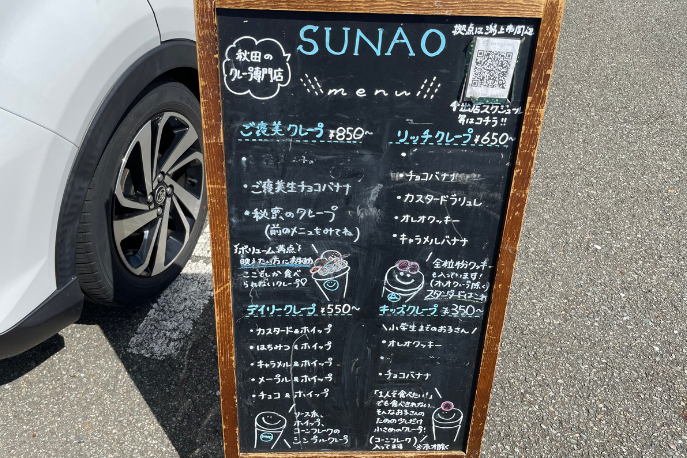 SUNAO
menu
秋田の
クレープ専門店
拠点は潟上市周辺
スケジュール
等はコチラ!!
ご褒美クレープ ¥850~
・ご褒美生チョコバナナ
・秘密のクレープ
(前のメニューをみてね)
ボリューム満点
映えたい方におすすめ
ここでしか食べ
られないクレープ
リッチクレープ ¥650~
・チョコバナナ
・カスタードブリュレ
・オレオクッキー
・キャラメルバナナ
全粒粉クッキー
も入っています!
(オレオクッキー除く)
スタンダードはこれ
デイリークレープ ¥550~
・カスタード&ホイップ
・はちみつ&ホイップ
・キャラメル&ホイップ
・メープル&ホイップ
・チョコ&ホイップ
ソース系、
ホイップ、
コーンフレークの
シンプルクレープ
キッズクレープ ¥350~
\小学生までのお子さん/
・オレオクッキー
・チョコバナナ
「1人で食べたい!」
でも食べきれない…
そんなお子さんの
ための少しだけ
小さめのクレープ!
(コーンフレーク)
入ってます